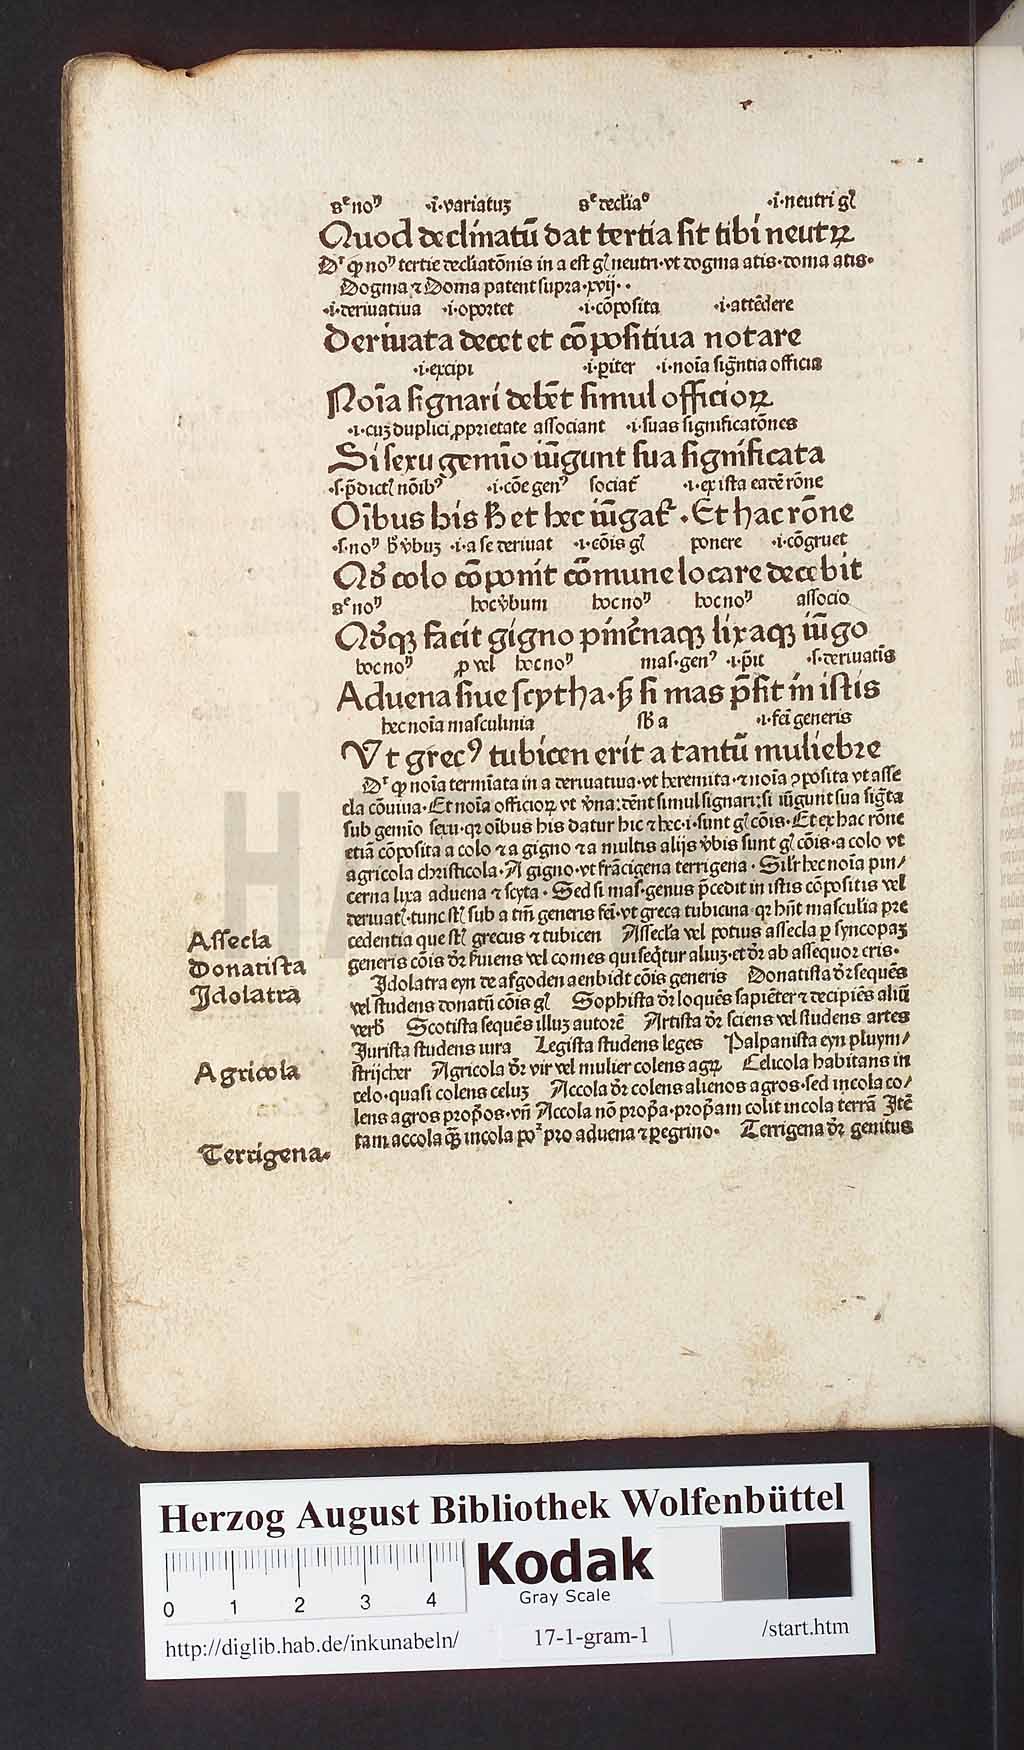 sᵉ noⁿ ·i·variatuʒ sᵉ decliaᵒ ·i·neutri gł
Quod declinatū dat tertia sit tibi neutꝝ
Dʳ ꝙ noⁿ tertie decliatōnis in a est gł neutri·vt dogma atis·doma atis·
Dogma ⁊ Doma patent supra·xvij··
·i·deriuatiua ·i·oportet ·i·cōposita ·i·attēdere
Deriuata decet et cōpositiua notare
·i·excipi ·i·ꝑiter ·i·noīa sigñtia officia
Noīa signari debēt simul officioꝝ
·i·cuʒ duplici ꝓprietate associant ·i·suas significatōnes
Si sexu gemīo iūgunt sua significata
·s·p̄dictꝭ nōibꝰ ·i·cōe genꝰ sociat̄ ·i·ex ista eadē rōne
Oībus his h̄ et hec iūgat̄·Et hac rōne
·s·noⁿ h̄ v̄buʒ ·i·a se deriuat ·i·cōis gł ponere ·i·cōgruet
Qd̄ colo cōponit cōmune locare decebit
sᵉ noⁿ hoc v̄bum hoc noⁿ hoc noⁿ associo
Qd̄qʒ facit gigno pīncernaqʒ lixaqʒ iūgo
hoc noⁿ ꝓ vel hoc noⁿ mas·genꝰ ·i·p̄it ·s·deriuatis
Aduena siue scytha·sʒ si mas p̄sit in istis
hec noīa masculinia sb̄ a ·i·feī generis
Vt grecꝰ tubicen erit a tantū muliebre
Dʳ ꝙ noīa termīata in a deriuatiua·vt heremita·⁊ noīa ↄposita vt asse
cla cōuiua·Et noīa officioꝝ vt v̄na:dēnt simul signari:si iūgunt sua sigt̄a
sub gemīo sexu·qꝛ oībus his datur hic ⁊ hec·i·sunt gł cōis·Et ex hac rōne
etiā cōposita a colo ⁊ a gigno ⁊ a multis alijs v̄bis sunt gł cōis·a colo vt
agricola christicola·A gigno·vt frācigena terrigena·Silr̄ hec noīa pin/
cerna lixa aduena ⁊ scyta·Sed si mas·genus p̄cedit in istis cōpositis vel
deriuatꝭ·tunc st̄ sub a tm̄ generis feī·vt greca tubicina·qꝛ hn̄t masculia pre
cedentia que st̄ grecus ⁊ tubicen Assecla vel potius assecla ꝑ syncopaʒ
generis cōis dr̄ ẜuiens vel comes qui seqt̄ur aliuʒ·et dr̄ ab assequor eris·
Idolatra eyn de afgoden aenbidt cōis generis Donatista dr̄ sequēs
vel studens donatū cōis gł Sophista dr̄ loquēs sapiēter ⁊ decipiēs aliū
verb̄ Scotista sequēs illuʒ autorē Artista dr̄ sciens vel studens artes
Jurista studens iura Legista studens leges Palpanista eyn pluym/
strijcher Agricola dr̄ vir vel mulier colens agꝝ Celicola habitans in
celo·quasi colens celuʒ Accola dr̄ colens alienos agros·sed incola co/
lens agros prop̄os·vn̄ Accola nō prop̄a·prop̄am colit incola terrā Itē
tam accola qʒ incola poʳ pro aduena ⁊ ꝑegrino· Terrigena dr̄ genitus
Assecla
Donatista
Idolatra
Agricola
Terrigena·
Herzog August Bibliothek Wolfenbüttel
Kodak
Gray Scale
0 1 2 3 4
http://diglib.hab.de/inkunabeln/ 17-1-gram-1 /start.htm